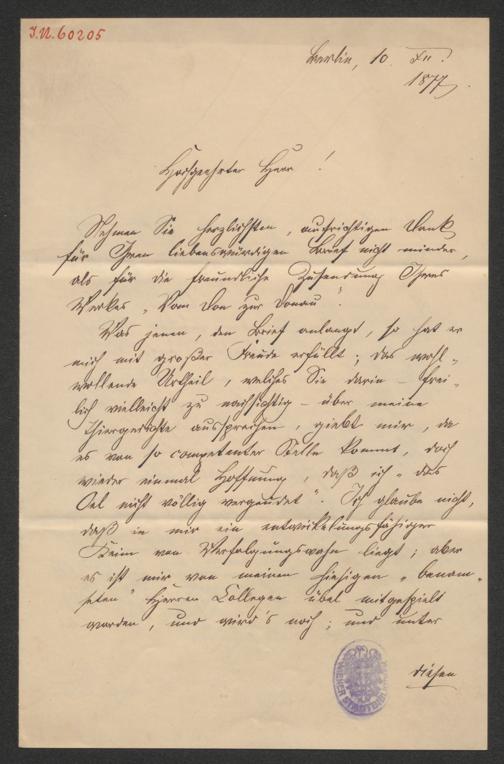 J.N. 60205
Berlin, 10. XII.
1877.
Hochgeehrter Herr!
Nehmen Sie herzlichsten, aufrichtigen Dank
für Ihren liebenswürdigen Brief nicht minder,
als für die freundliche Zusendung Ihres
Werkes „Vom Don zur Donau“.
Was jenen, den Brief anlangt, so hat er
mich mit großer Freude erfüllt; das wohl-
wollende Urtheil, welches Sie darin – frei-
lich vielleicht zu nachsichtig – über meine
Thiergedichte aussprechen, giebt mir, da
es von so competenter Stelle kommt, doch
wieder einmal Hoffnung, daß ich „das
Oel nicht völlig vergeudet“. Ich glaube nicht,
daß in mir ein entwickelungsfähiger
Keim von Verfolgungswahn liegt; aber
es ist mir von meinen hiesigen „benam-
seten“ Herren Collegen übel mitgespielt
worden, und wird's noch; und unter
diesen